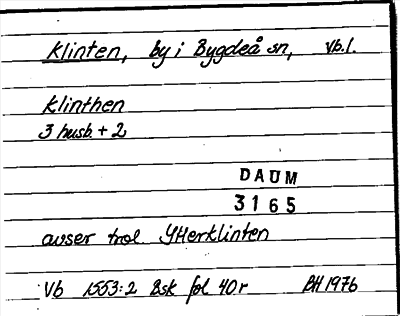 Klinten, by i Bygdeå sn, Vb.l.
Klinthen
3 husb. + 2
DAUM
3165
avser trol. Ytterklinten
Vb 1553:2 Bsk fol 40r BH 1976